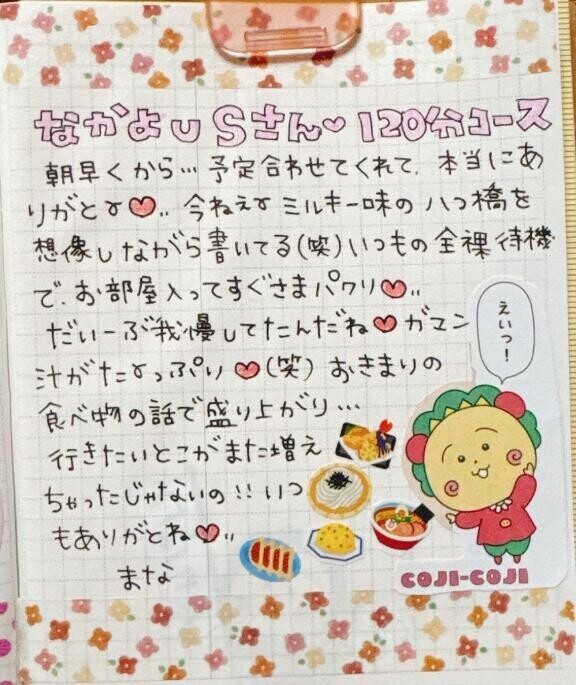 なかよしSさん♡120分コース
朝早くから…予定合わせてくれて、本当にあ
りがとｵ♥‥今ねぇｵミルキー味の八つ橋を
想像しながら書いてる(笑)いつもの全裸待機
で、お部屋入ってすぐさまパクリ♥‥
だいーぶ我慢してたんだね♥ガマン
汁がたｵっぷり♥(笑)おきまりの
食べ物の話で盛り上がり…
行きたいとこがまた増え
ちゃったじゃないの!!いつ
もありがとね♥‥
まな
えいっ!
COJI-COJI